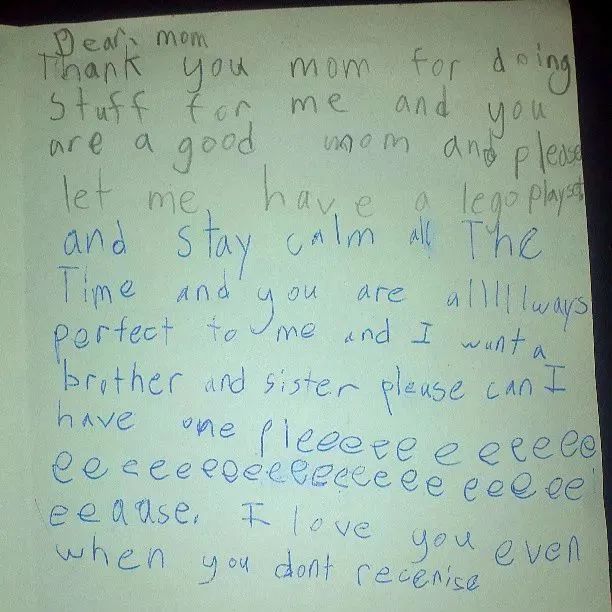 Dear, mom
Thank you mom for doing
stuff for me and you
are a good mom and please
let me have a lego playset
and stay calm all The
Time and you are allllllways
perfect to me and I want a
brother and sister please can I
have one pleeeeee e e eeeee
ee e eeeeeeeeeeeeeee eeeee
eeause. I love you even
when you dont recenise